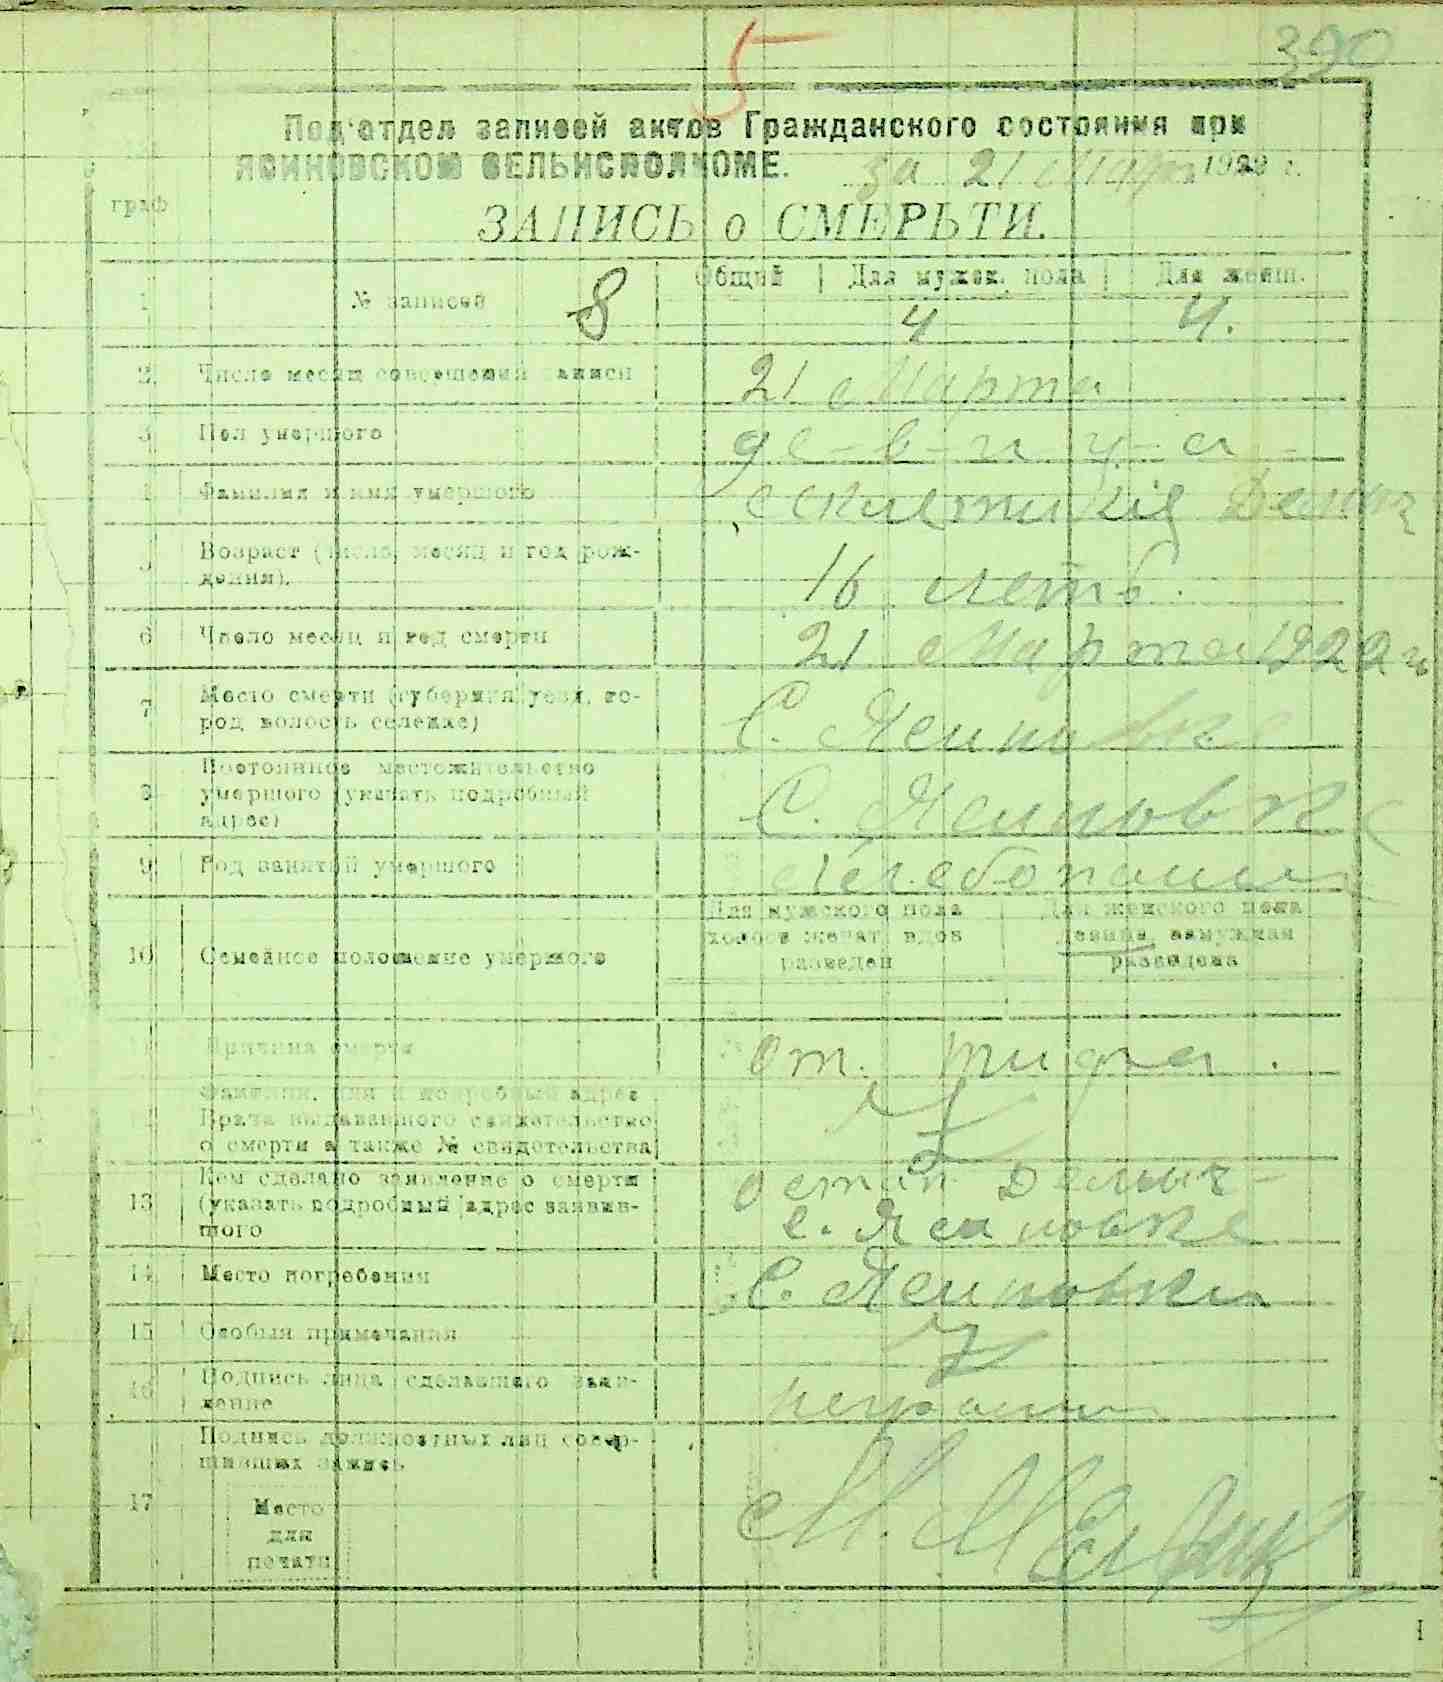 390
5
Под'отдел записей актов Гражданского состояния при
ЯСИНОВСКОМ СЕЛЬИСПОЛКОМЕ. за 21 Март 1922 г.
граф
ЗАПИСЬ о СМЕРЬТИ.
1 № записей 8 Общий Для мужск. пола Для женщ.
4 4.
2 Число месяц совершения записи 21 Марта
3 Пол умершого де-в-и-ц-а
4 Фамилия и имя умершого Демич
5 Возраст (число, месяц и год рож-
дения). 16 летъ.
6 Число месяц и год смерти 21 Марта 1922 г
7 Место смерти (губерния уезд, го-
род волость селение) С. Ясиновке
8 Постоянное местожительство
умершого (указать подробный
адрес) С. Ясиновке
9 Род занятий умершого
Для мужского пола Для женского пола
холост женат, вдов девица, замужняя
10 Семейное положение умершого разведен разведена
11 Причина смерти от. тифа.
12 Фамилия, имя и подробный адрес
Врача выдававшого свидетельство
о смерти а также № свидетельства
13 Кем сделано заявление о смерти
(указать подробный адрес заявив-
шого Остап Демич
с. Ясиновке
14 Место погребения С. Ясиновки
15 Особыя примечания
16 Подпись лица сделавшего заяв-
ление неграмотн
Подпись должностных лиц совер-
шивших запись
17 Место
для
печати